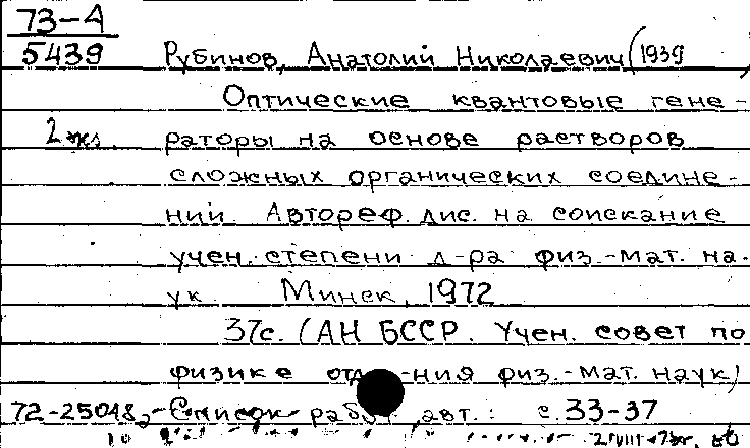 73-А
5439 Рубинов, Анатолий Николаевич (1939
Оптические квантовые гене-
2 экз. раторы на основе растворов
сложных органических соедине-
ний. Автореф. дис. на соискание
учен. степени д-ра физ.-мат. на-
ук. Минск, 1972
37с. (АН БССР. Учен. совет по
физике отд -ния физ.-мат. наук)
72-25048 Список работ авт.: с. 33-37